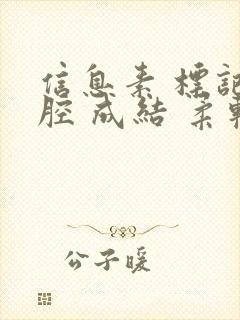 信息素 標記
腔 成結 柔軟
公子暖